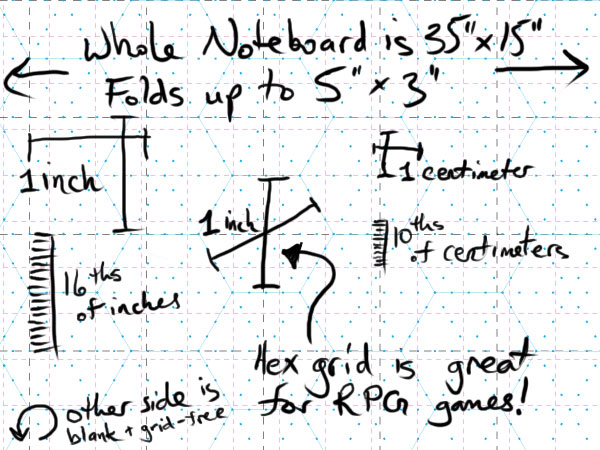 Whole Noteboard is 35" x 15"
Folds up to 5" x 3"
1 inch
1 centimeter
1 inch
10ths
of centimeters
16ths
of inches
Hex grid is great
for RPG games!
other side is
blank + grid-free